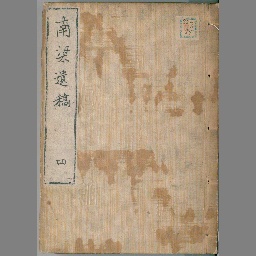 南梁遺稿
四